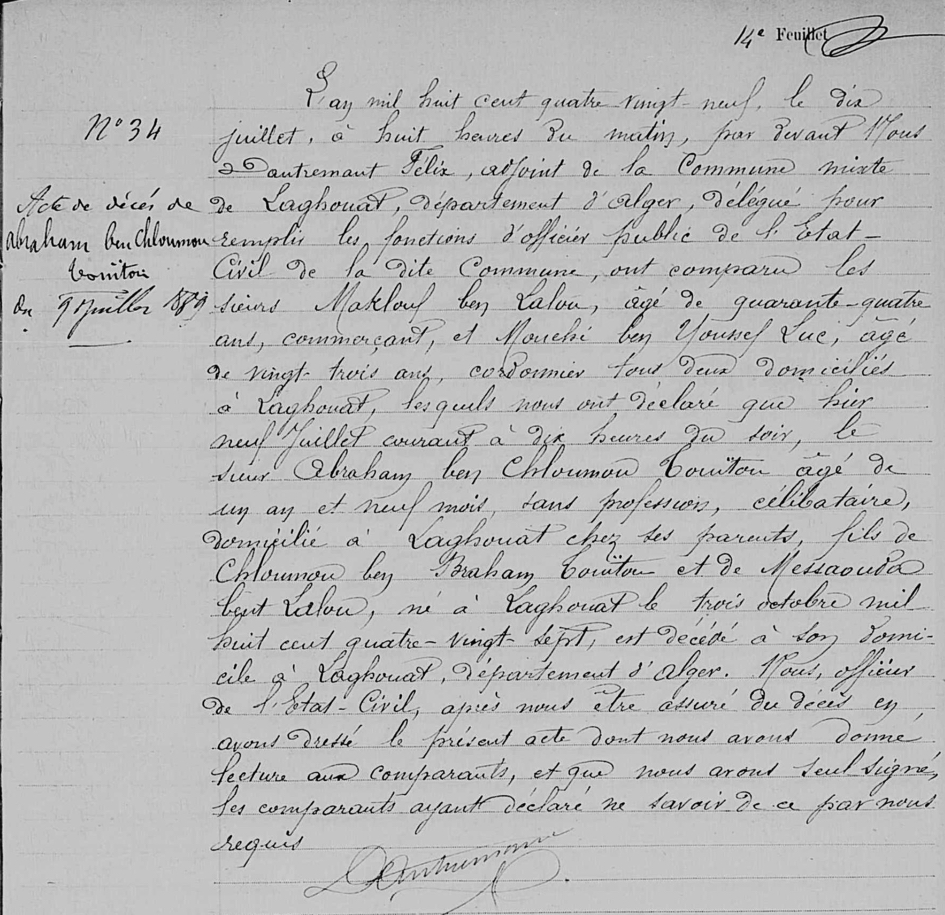 14e Feuillet
N° 34
Acte de décès de
Abraham ben Chloumou
Touïtou
du 9 Juillet 1889
L'an mil huit cent quatre vingt-neuf, le dix
juillet, à huit heures du matin, par devant Nous
Dautremant Félix, adjoint de la Commune mixte
de Laghouat, département d'Alger, délégué pour
remplir les fonctions d'officier public de l'Etat-
Civil de la dite Commune, ont comparu les
sieurs Maklouf ben Lalou, âgé de quarante-quatre
ans, commerçant, et Mouchi ben Youssef Luc, âgé
de vingt-trois ans, cordonnier tous deux domiciliés
à Laghouat, lesquels nous ont déclaré que hier
neuf Juillet courant à dix heures du soir, le
sieur Abraham ben Chloumou Touïtou âgé de
un an et neuf mois, sans profession, célibataire,
domicilié à Laghouat chez ses parents, fils de
Chloumou ben Braham Touïtou et de Messaouda
bent Lalou, né à Laghouat le trois octobre mil
huit cent quatre-vingt-sept, est décédé à son domi-
cile à Laghouat, département d'Alger. Nous, officier
de l'Etat-Civil, après nous être assuré du décès en
avons dressé le présent acte dont nous avons donné
lecture aux comparants, et que nous avons seul signé,
les comparants ayant déclaré ne savoir de ce par nous
requis